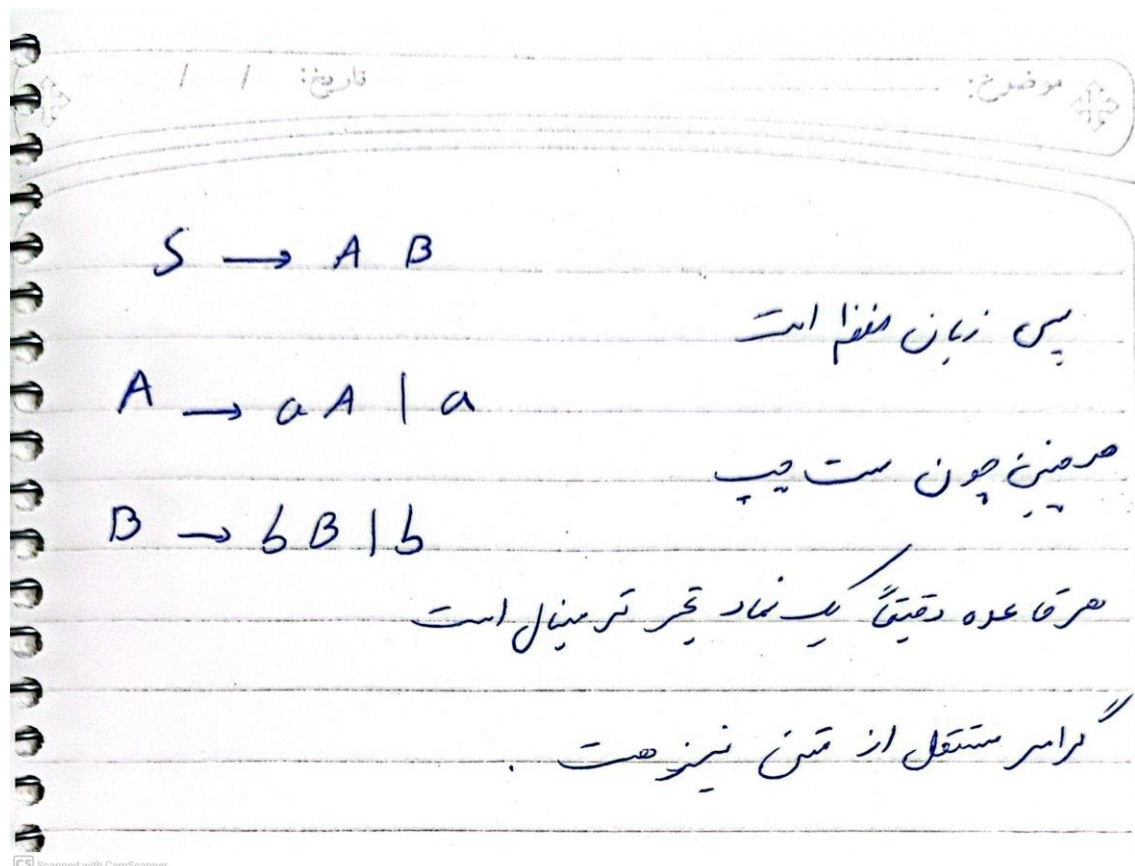 موضوع:
تاریخ: / /
S → A B
پس زبان منظم است
A → aA | a
همچنین چون سمت چپ
B → bB | b
هر قاعده دقیقاً یک نماد غیر ترمینال است
گرامر مستقل از متن نیز هست .
CS Scanned with CamScanner